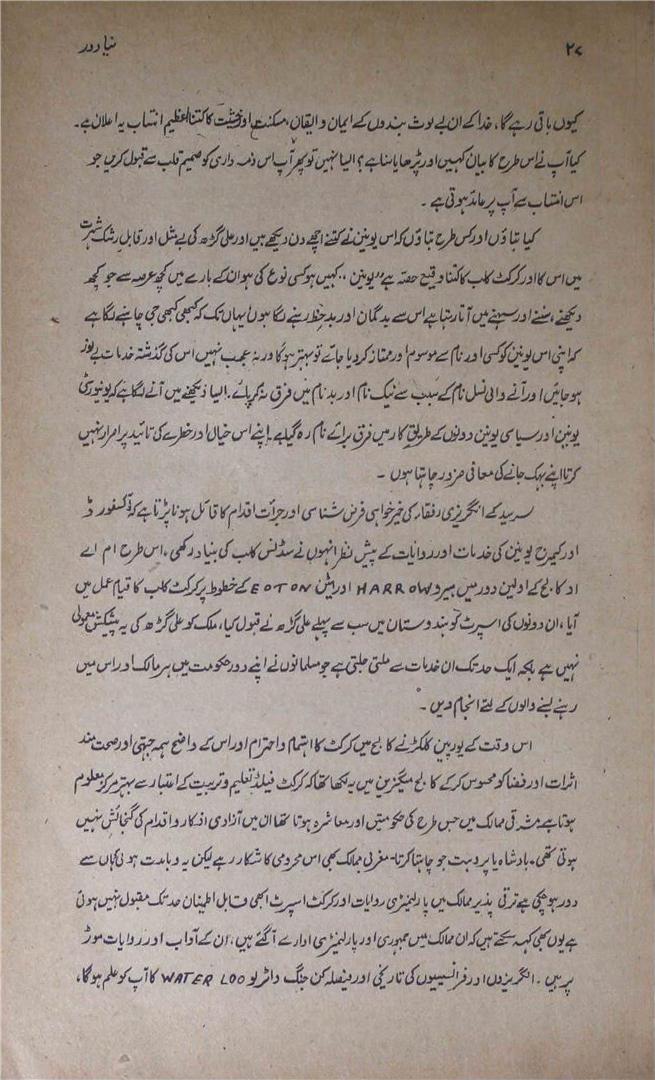 ۲۷ نیا دور
کیوں باقی رہے گا، خدا کے ان بے لوث بندوں کے ایمان و ایقان، مسکنت اور خشیت کا کتنا عظیم انتساب یہ اعلان ہے۔
کیا آپ نے اس طرح کا بیان کہیں اور پڑھا یا سنا ہے؟ ایسا نہیں تو پھر آپ اس ذمہ داری کو صمیم قلب سے قبول کریں جو
اس انتساب سے آپ پر عائد ہوتی ہے۔
کیا بتاؤں اور کس طرح بتاؤں کہ اس یونین نے کتنے اچھے دن دیکھے ہیں اور علی گڑھ کی بے مثل اور قابل رشک شہرت
میں اس کا اور کرکٹ کلب کا کتنا وقیع حصہ ہے "یونین" کہیں ہو کسی نوع کی ہو ان کے بارے میں کچھ عرصہ سے جو کچھ
دیکھنے، سننے اور سہنے میں آتا رہتا ہے اس سے بدگمان اور بدحظ رہنے لگا ہوں یہاں تک کہ کبھی کبھی جی چاہنے لگا ہے
کہ اپنی اس یونین کو کسی اور نام سے موسوم اور ممتاز کر دیا جائے تو بہتر ہوگا ورنہ عجب نہیں اس کی گذشتہ خدمات بے نور
ہو جائیں اور آنے والی نسل نام کے سبب سے نیک نام اور بدنام میں فرق نہ کر پائے۔ ایسا دیکھنے میں آنے لگا ہے کہ یونیورسٹی
یونین اور سیاسی یونین دونوں کے طریق کار میں فرق برائے نام رہ گیا ہے۔ اپنے اس خیال اور خطرے کی تائید پر اصرار نہیں
کرتا اپنے بہک جانے کی معافی ضرور چاہتا ہوں۔
سرسید کے انگریزی رفقاء کی خیر خواہی فرض شناسی اور جرأت اقدام کا قائل ہونا پڑتا ہے کہ آکسفورڈ
اور کیمرج یونین کی خدمات اور روایات کے پیش نظر انہوں نے سڈنس کلب کی بنیاد رکھی، اس طرح ام اے
او کالج کے اولین دور میں ہیرو HARROW اور ایٹن EOTON کے خطوط پر کرکٹ کلب کا قیام عمل میں
آیا، ان دونوں کی اسپرٹ کو ہندوستان میں سب سے پہلے علی گڑھ نے قبول کیا، ملک کو علی گڑھ کی یہ پیشکش معمولی
نہیں ہے بلکہ ایک حد تک ان خدمات سے ملتی جلتی ہے جو مسلمانوں نے اپنے دور حکومت میں ہر ملک اور اس میں
رہنے بسنے والوں کے لئے انجام دیں۔
اس وقت کے یورپین کلکٹر نے کالج میں کرکٹ کا اہتمام و احترام اور اس کے واضح ہمہ جہتی اور صحت مند
اثرات اور فضا کو محسوس کر کے کالج میگزین میں یہ لکھا تھا کہ کرکٹ فیلڈ تعلیم و تربیت کے اعتبار سے بہتر مرکز معلوم
ہوتا ہے مشرقی ممالک میں جس طرح کی حکومتیں اور معاشرہ ہوتا تھا ان میں آزادی اذکار و اقدام کی گنجائش نہیں
ہوتی تھی۔ بادشاہ یا پروہت جو چاہتا کرتا۔ مغربی ممالک بھی اس محرومی کا شکار رہے لیکن یہ وبا مدت ہوئی کہاں سے
دور ہو چکی ہے ترقی پذیر ممالک میں پارلیمنٹری روایات اور کرکٹ اسپرٹ ابھی قابل اطمینان حد تک مقبول نہیں ہوئی
ہے یوں بھی کہہ سکتے ہیں کہ ان ممالک میں جمہوری اور پارلیمنٹری ادارے آ گئے ہیں، ان کے آداب اور روایات موڑ
پر ہیں۔ انگریزوں اور فرانسیسیوں کی تاریخی اور فیصلہ کن جنگ واٹرلو WATER LOO کا آپ کو علم ہوگا،